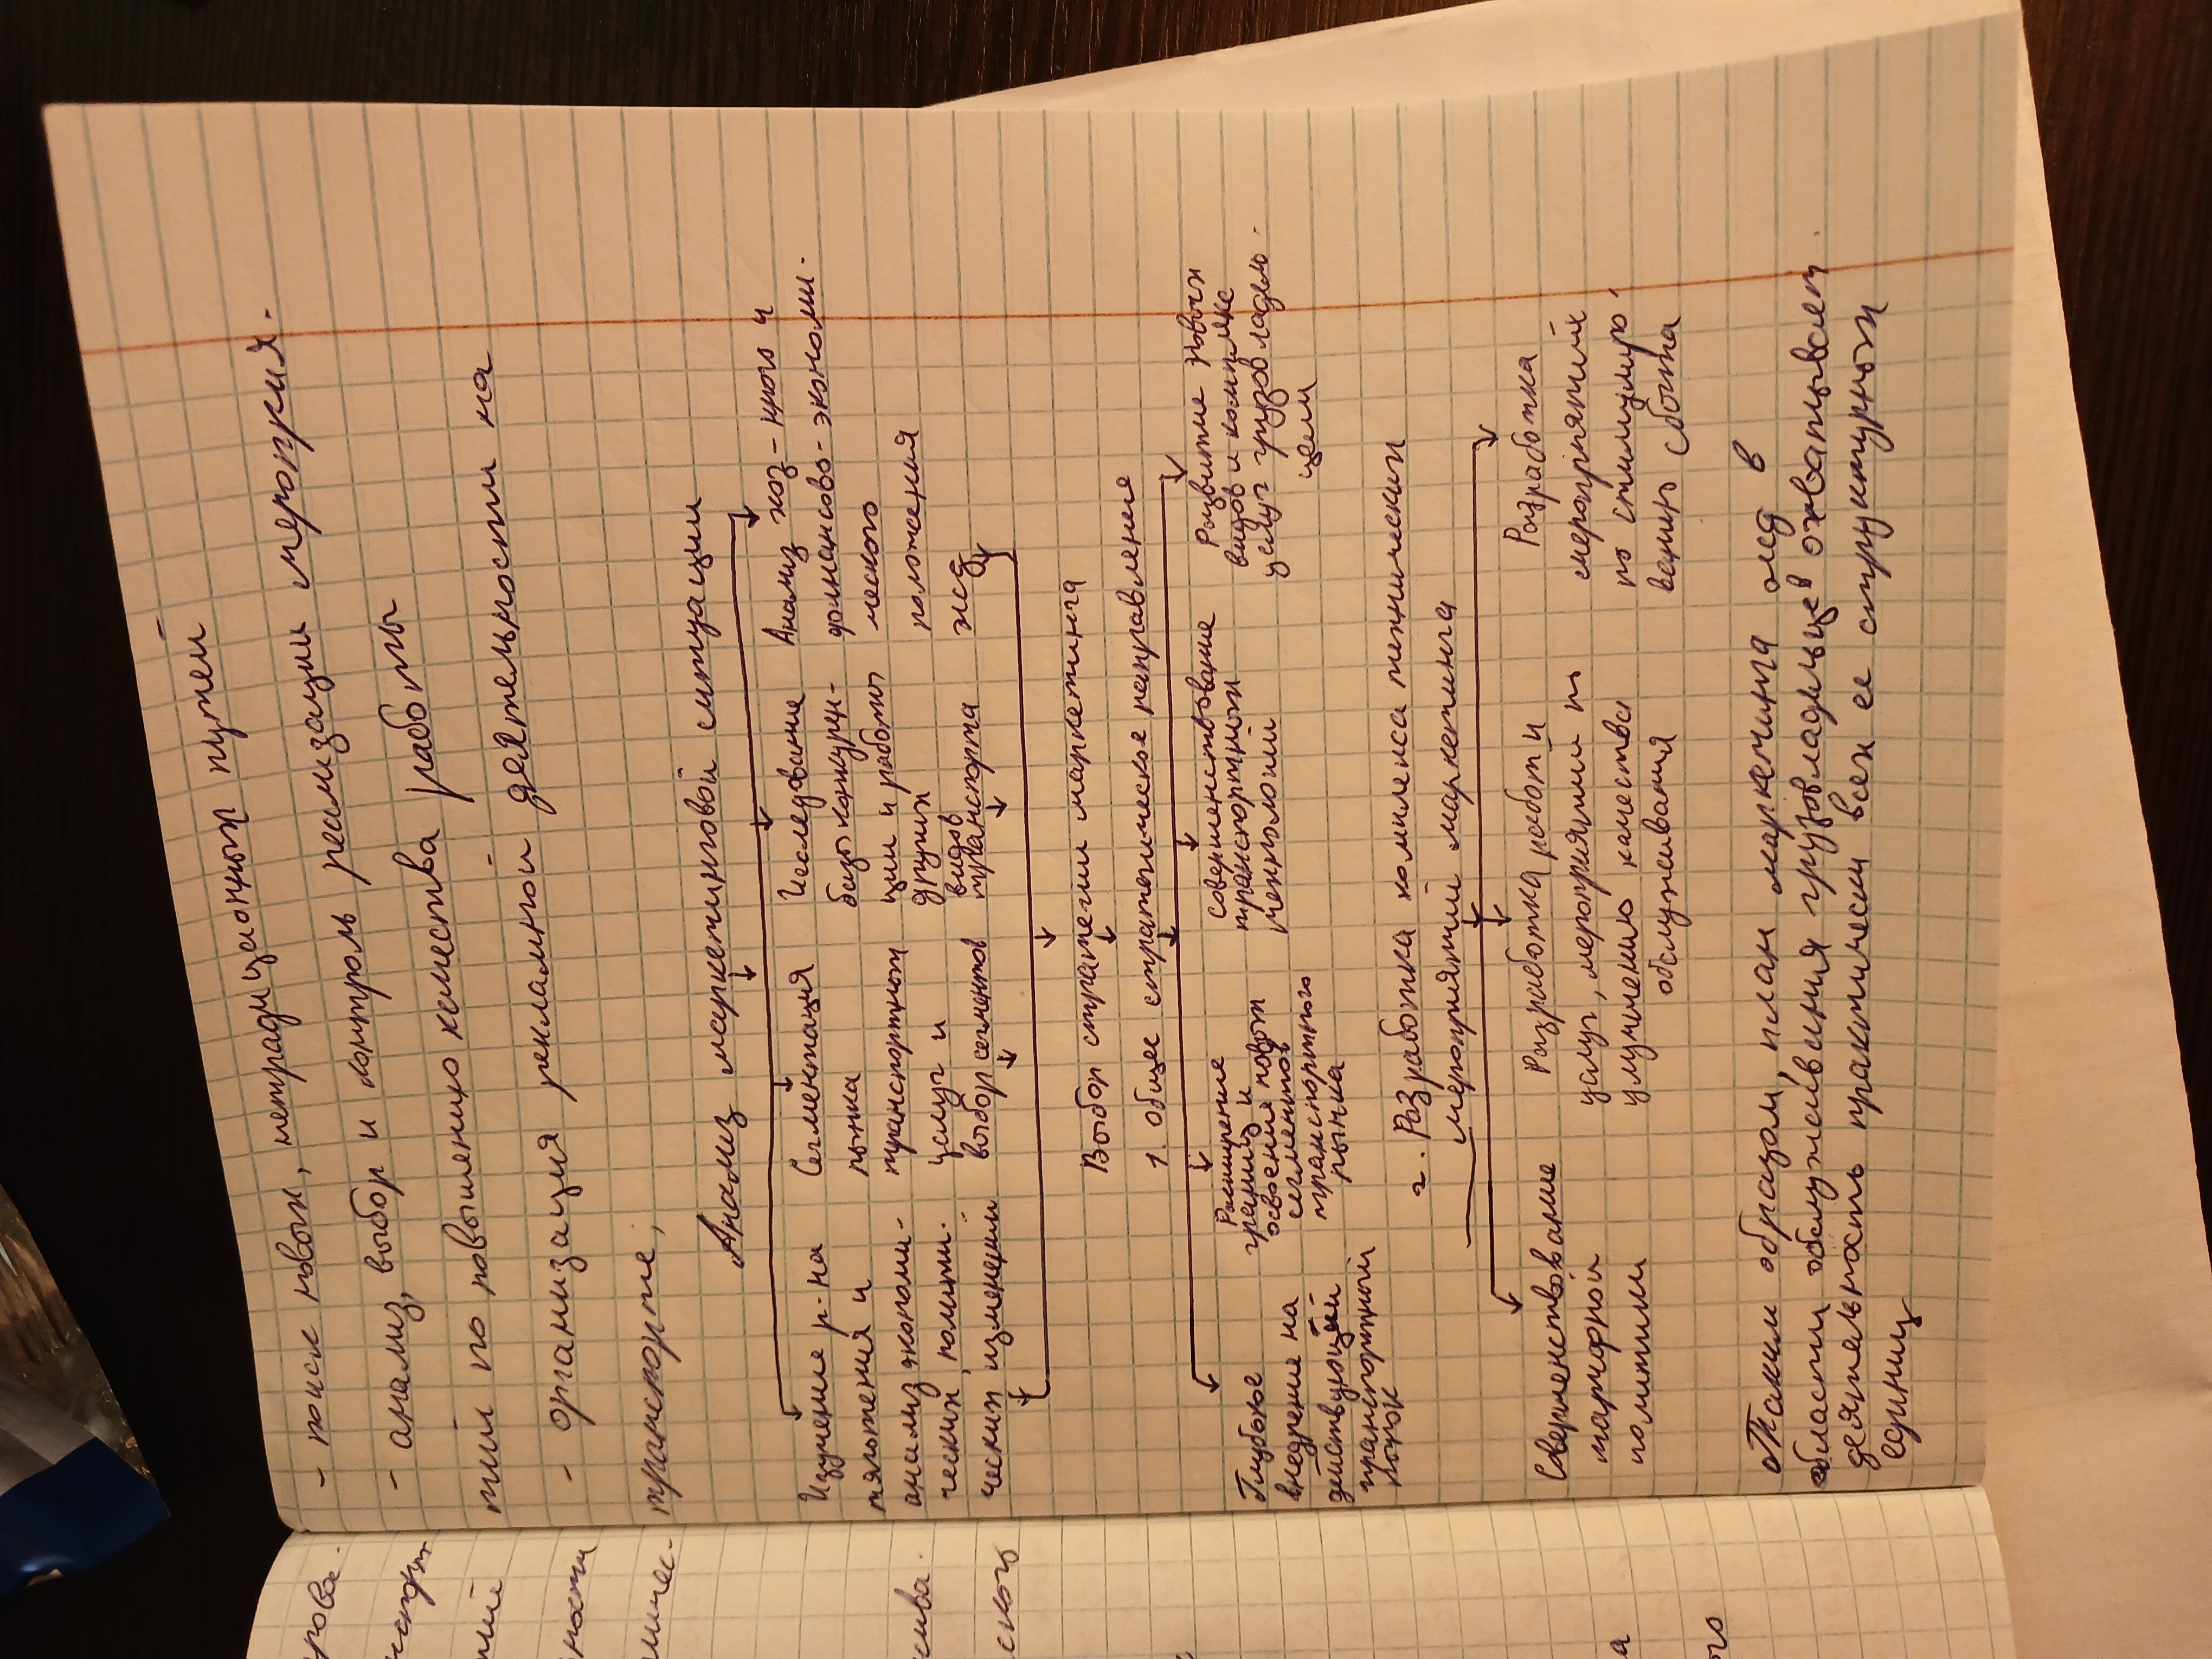 - поиск новых, нетрадиционных путей
- анализ, выбор и контроль реализации мероприя-
тий по повышению качества работы
- организация рекламной деятельности на
транспорте;
Анализ маркетинговой ситуации
Изучение р-на
тяготения и
анализ экономи-
ческих, полити-
ческих изменений
Сегментация
рынка
транспортных
услуг и
выбор сегментов
Исследование
базы конкурен-
ции и работы
других
видов
транспорта
Анализ хоз-ного и
финансово-экономи-
ческого
положения
жд
Выбор стратегии маркетинга
1. Общее стратегическое направление
Глубокое
внедрение на
действующий
транспортный
рынок
Расширение
границ и
освоение новых
сегментов
транспортного
рынка
Совершенствование
транспортных
технологий
Развитие новых
видов и комплекс
услуг грузовладель-
цем
2. Разработка комплекса технических
мероприятий маркетинга
Совершенствование
тарифной
политики
Разработка работ и
услуг, мероприятий по
улучшению качества
обслуживания
Разработка
мероприятий
по стимулиро-
ванию сбыта
Таким образом, план маркетинга жд в
области обслуживания грузовладельцев охватывает
деятельность практически всех ее структурных
единиц.
рова-
тий
ности
ского
ого